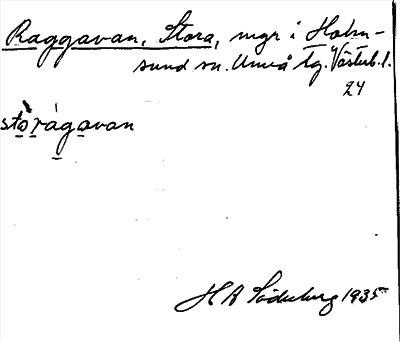 Raggavan, Stora, mgr i Holm-
sund sn. Umeå tg. Västerb. l.
24
storagavan
H A Söderberg 1935